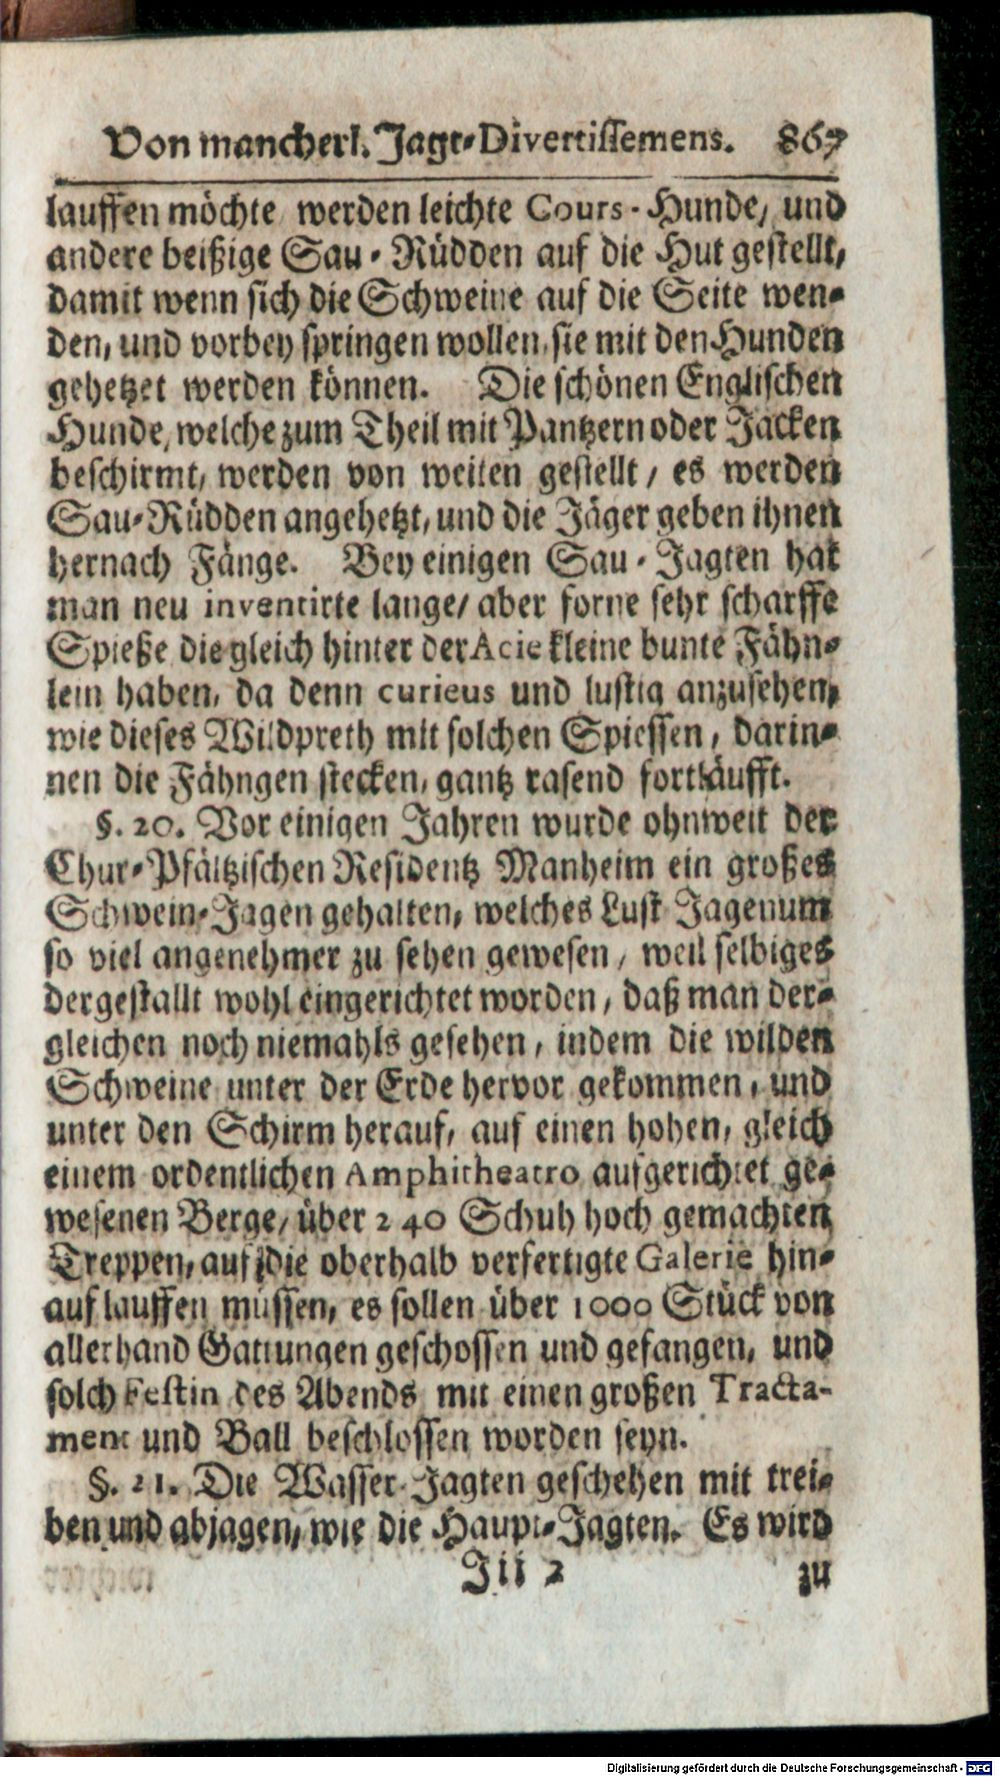 Von mancherl. Jagt-Divertissemens. 867
lauffen möchte, werden leichte Cours-Hunde, und
andere beißige Sau-Rüdden auf die Hut gestellt,
damit wenn sich die Schweine auf die Seite wen-
den, und vorbey springen wollen, sie mit den Hunden
gehetzet werden können. Die schönen Englischen
Hunde, welche zum Theil mit Pantzern oder Jacken
beschirmt, werden von weiten gestellt / es werden
Sau-Rüdden angehetzt, und die Jäger geben ihnen
hernach Fänge. Bey einigen Sau-Jagten hat
man neu inventirte lange/ aber forne sehr scharffe
Spieße die gleich hinter der Acie kleine bunte Fähn-
lein haben, da denn curieus und lustig anzusehen,
wie dieses Wildpreth mit solchen Spiessen, darin-
nen die Fähngen stecken, gantz rasend fortläufft.
§. 20. Vor einigen Jahren wurde ohnweit der
Chur-Pfältzischen Residentz Manheim ein großes
Schwein-Jagen gehalten, welches Lust-Jagen um
so viel angenehmer zu sehen gewesen, weil selbiges
dergestallt wohl eingerichtet worden, daß man der-
gleichen noch niemahls gesehen, indem die wilden
Schweine unter der Erde hervor gekommen, und
unter den Schirm herauf, auf einen hohen, gleich
einem ordentlichen Amphitheatro aufgerichtet ge-
wesenen Berge/ über 240 Schuh hoch gemachten
Treppen, auf die oberhalb verfertigte Galerie hin-
auf lauffen müssen, es sollen über 1000 Stück von
allerhand Gattungen geschossen und gefangen, und
solch Festin des Abends mit einen großen Tracta-
ment und Ball beschlossen worden seyn.
§. 21. Die Wasser-Jagten geschehen mit trei-
ben und abjagen, wie die Haupt-Jagten. Es wird
Jii 2 zu
Digitalisierung gefördert durch die Deutsche Forschungsgemeinschaft - DFG